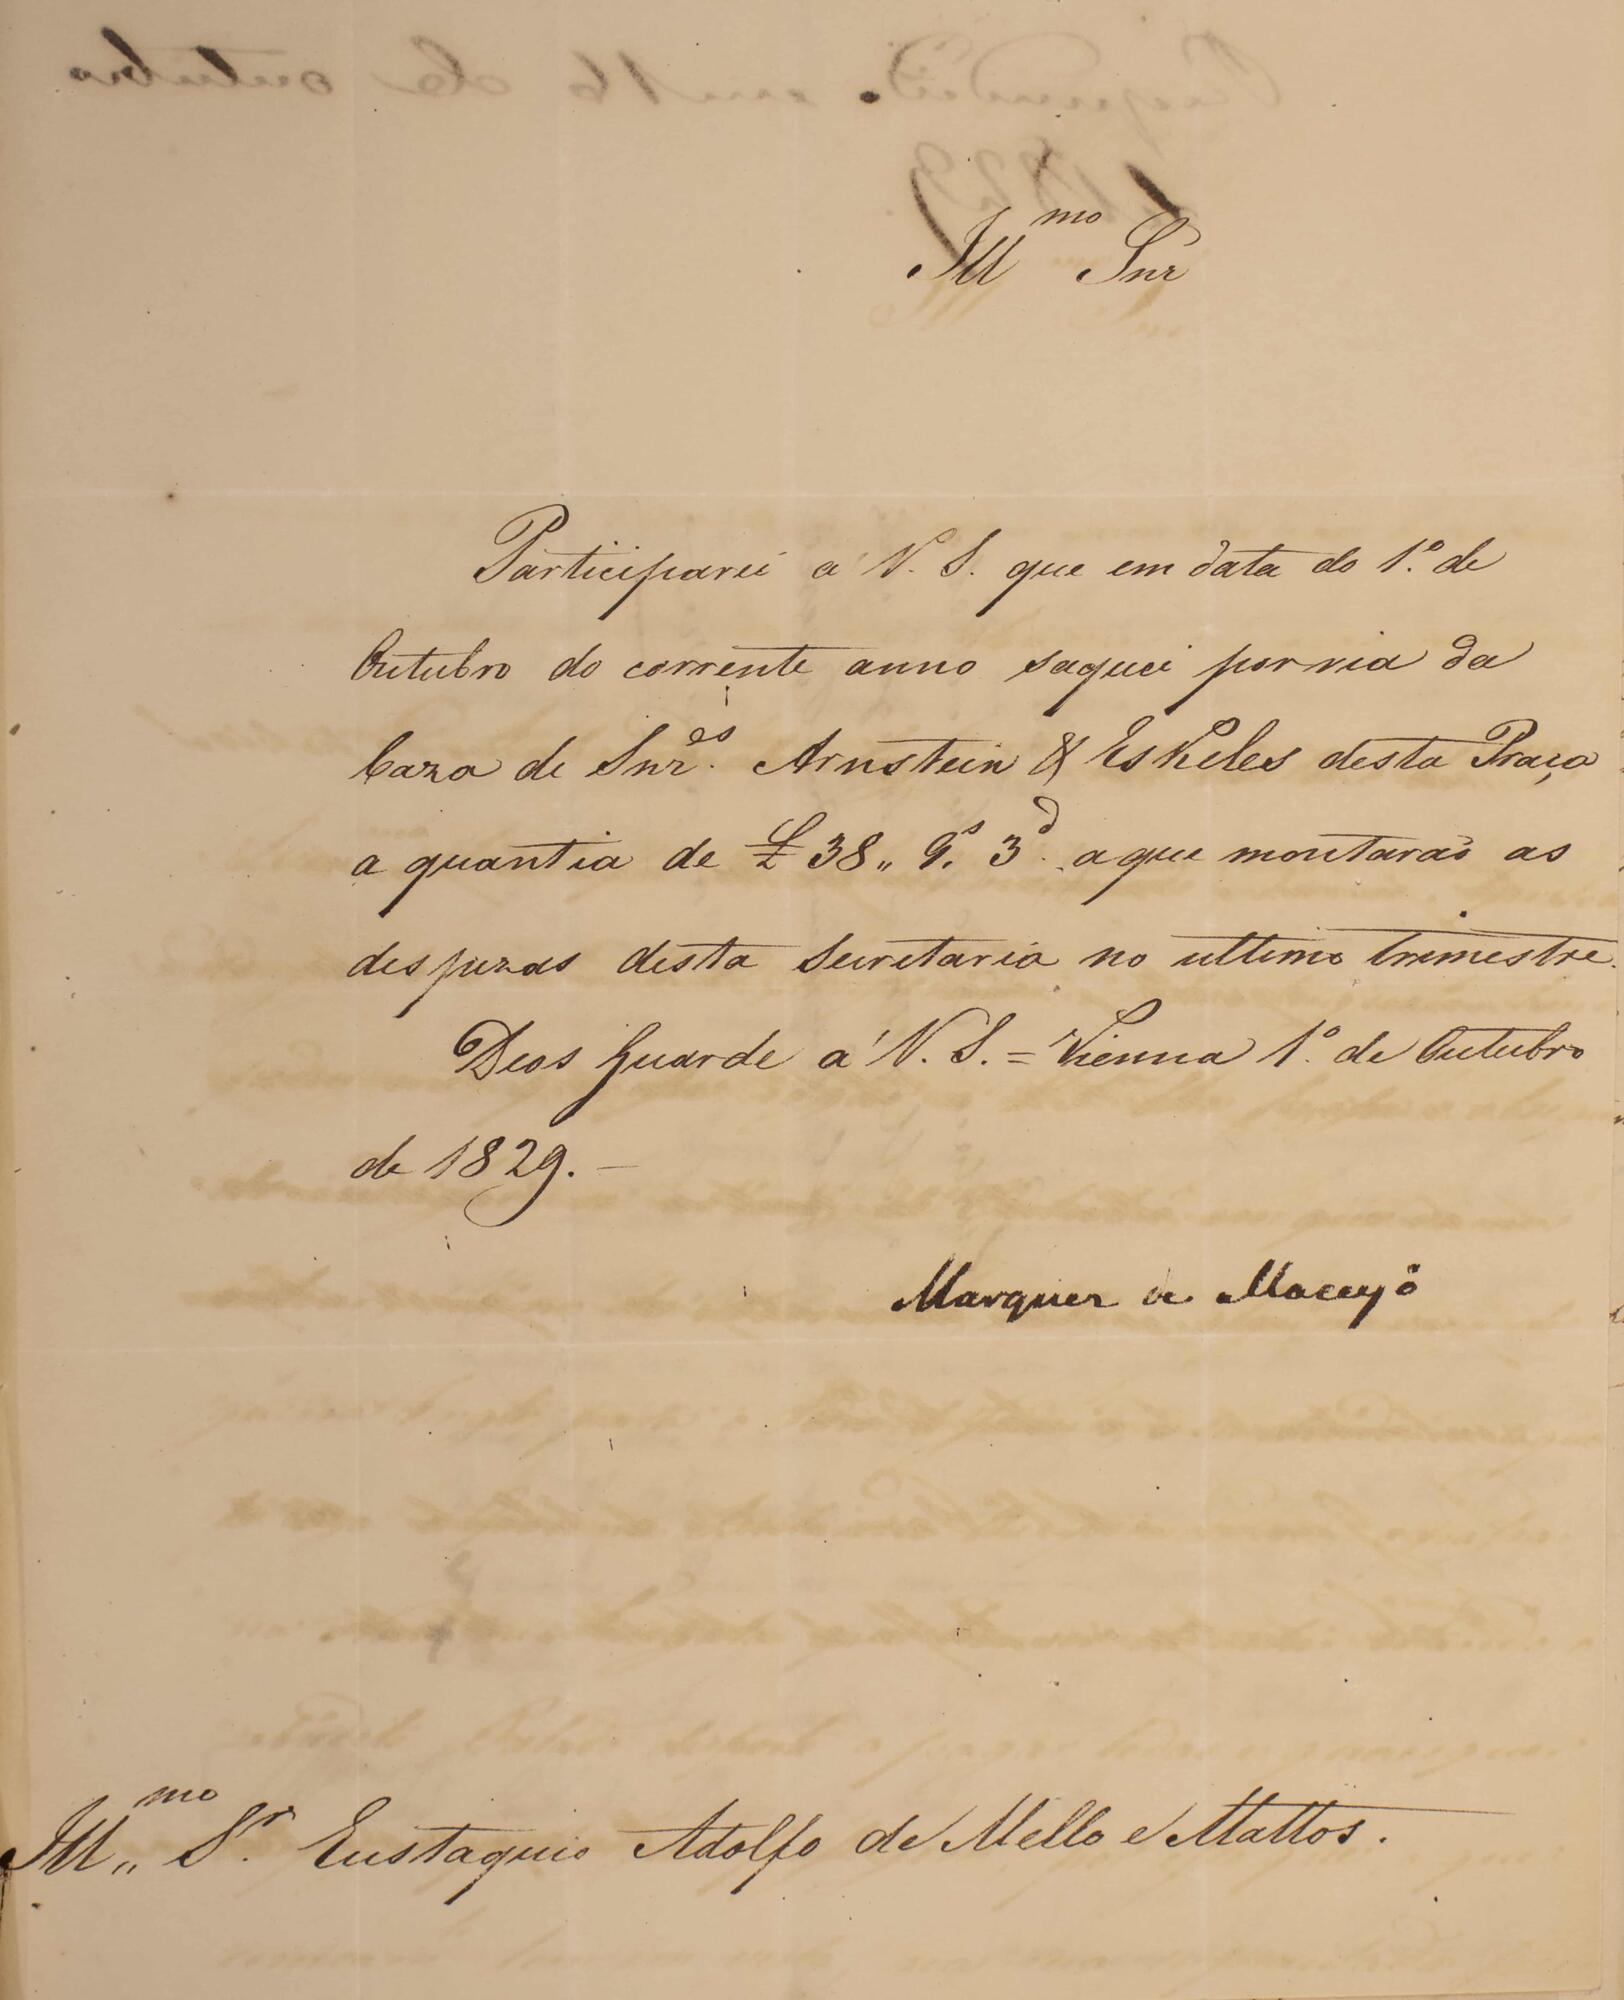 Illmo Snr
Participarei a V. S. que em data do 1.º de
Outubro do corrente anno saquei por via da
Caza de Snr.es Arnstein & Eskeles desta Praça
a quantia de £ 38,, 9.s 3.d a que montarão as
despezas desta Secretaria no ultimo trimestre.
Deos Guarde a V. S. = Vienna 1.º de Outubro
de 1829. —
Marquez de Maceyó
Illmo,, S.r Eustaquio Adolfo de Mello e Mattos.